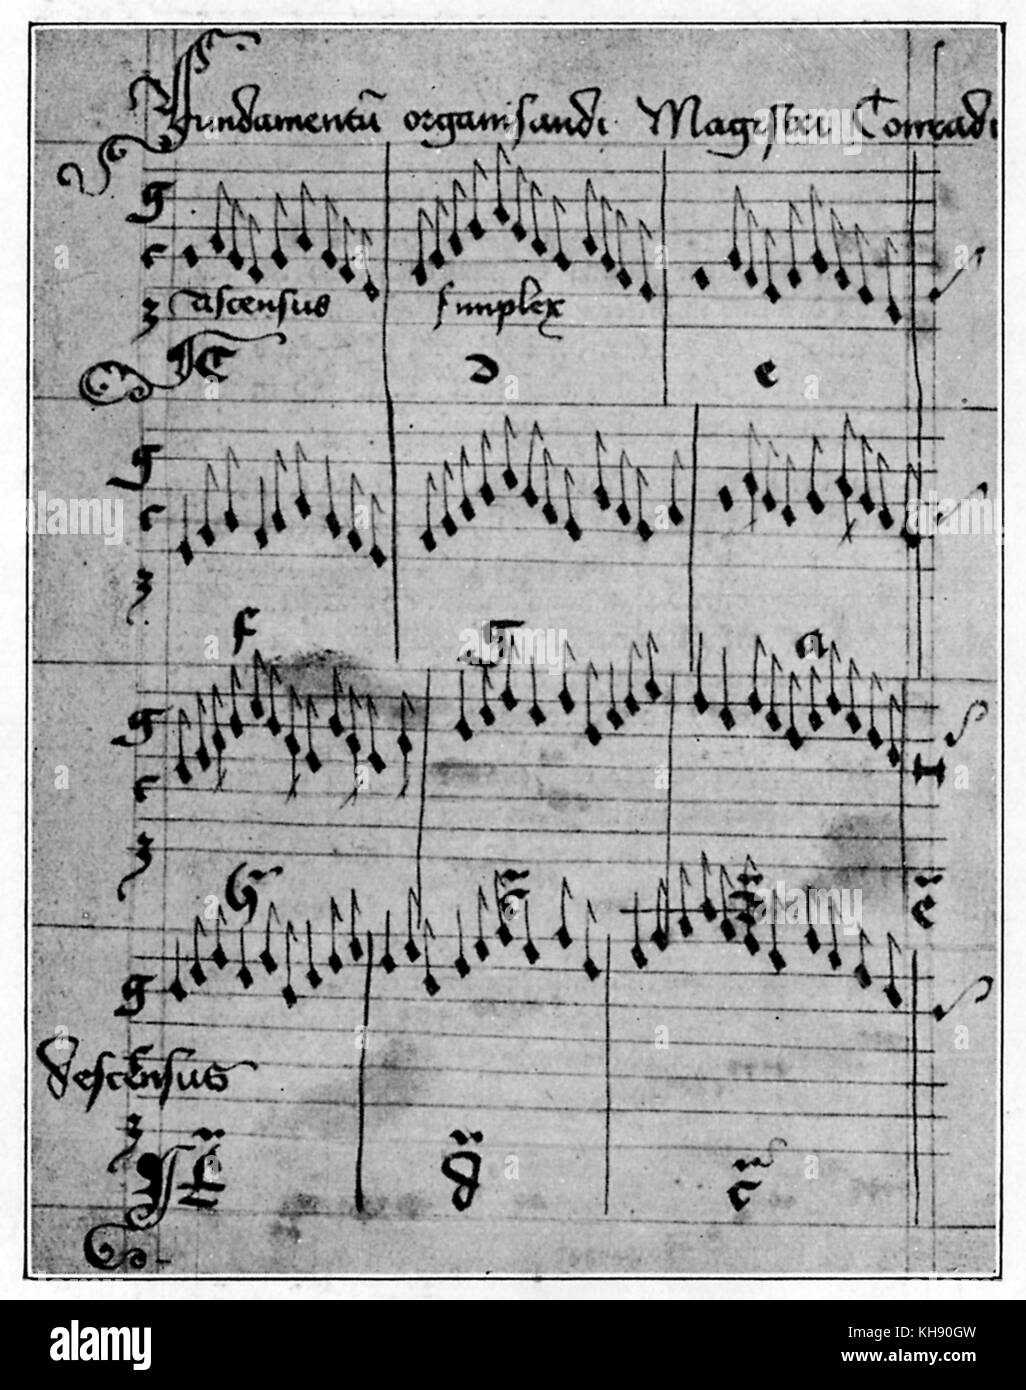 Fundamentū organisandi Magistri Conradi
g
c
ascensus simplex
C d e
g
c
f g a
g
c
g
descensus
d
alamy
Image ID: KH90GW
www.alamy.com